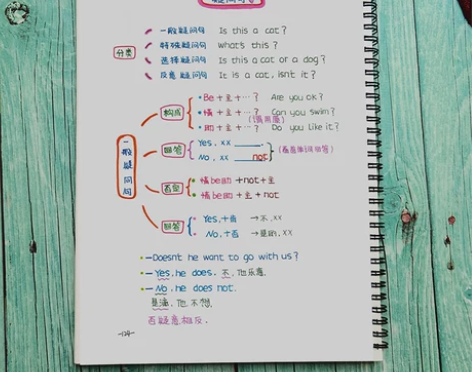 疑问句
分类
一般疑问句 Is this a cat?
特殊疑问句 what's this?
选择疑问句 Is this a cat or a dog?
反意疑问句 It is a cat, isn't it?
一般疑问句
构成
Be+主+…? Are you ok?
情+主+…? Can you swim?
助+主+…? Do you like it?
回答
Yes, xx
No, xx not
否定
情be助+not+主
情be助+主+not
回答
Yes,+肯 →不,xx
No,+否 →是的,xx
-Doesn't he want to go with us?
-Yes, he does. 不,他乐意.
-No, he does not.
是滴,他不想.
否疑意相反.
-124-